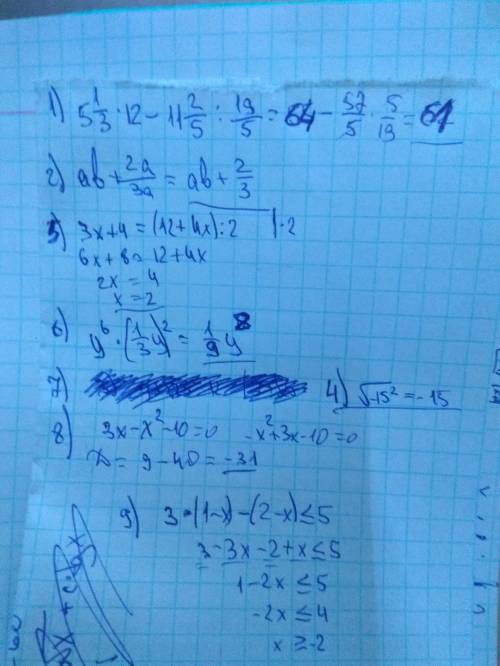 1) 5 1/3 · 12 - 11 2/5 : 19/5 = 64 - 57/5 · 5/19 = 61
2) ab + 2a/3a = ab + 2/3
5) 3x+4 = (12+4x):2 |·2
6x+8 = 12+4x
2x = 4
x = 2
6) y^6 · (1/3 y)^2 = 1/9 y^8
7)
4) √-15² = -15
8) 3x-x²-10=0 -x²+3x-10=0
D = 9-40 = -31
9) 3·(1-x)-(2-x)≤5
3-3x-2+x≤5
1-2x≤5
-2x≤4
x≥-2